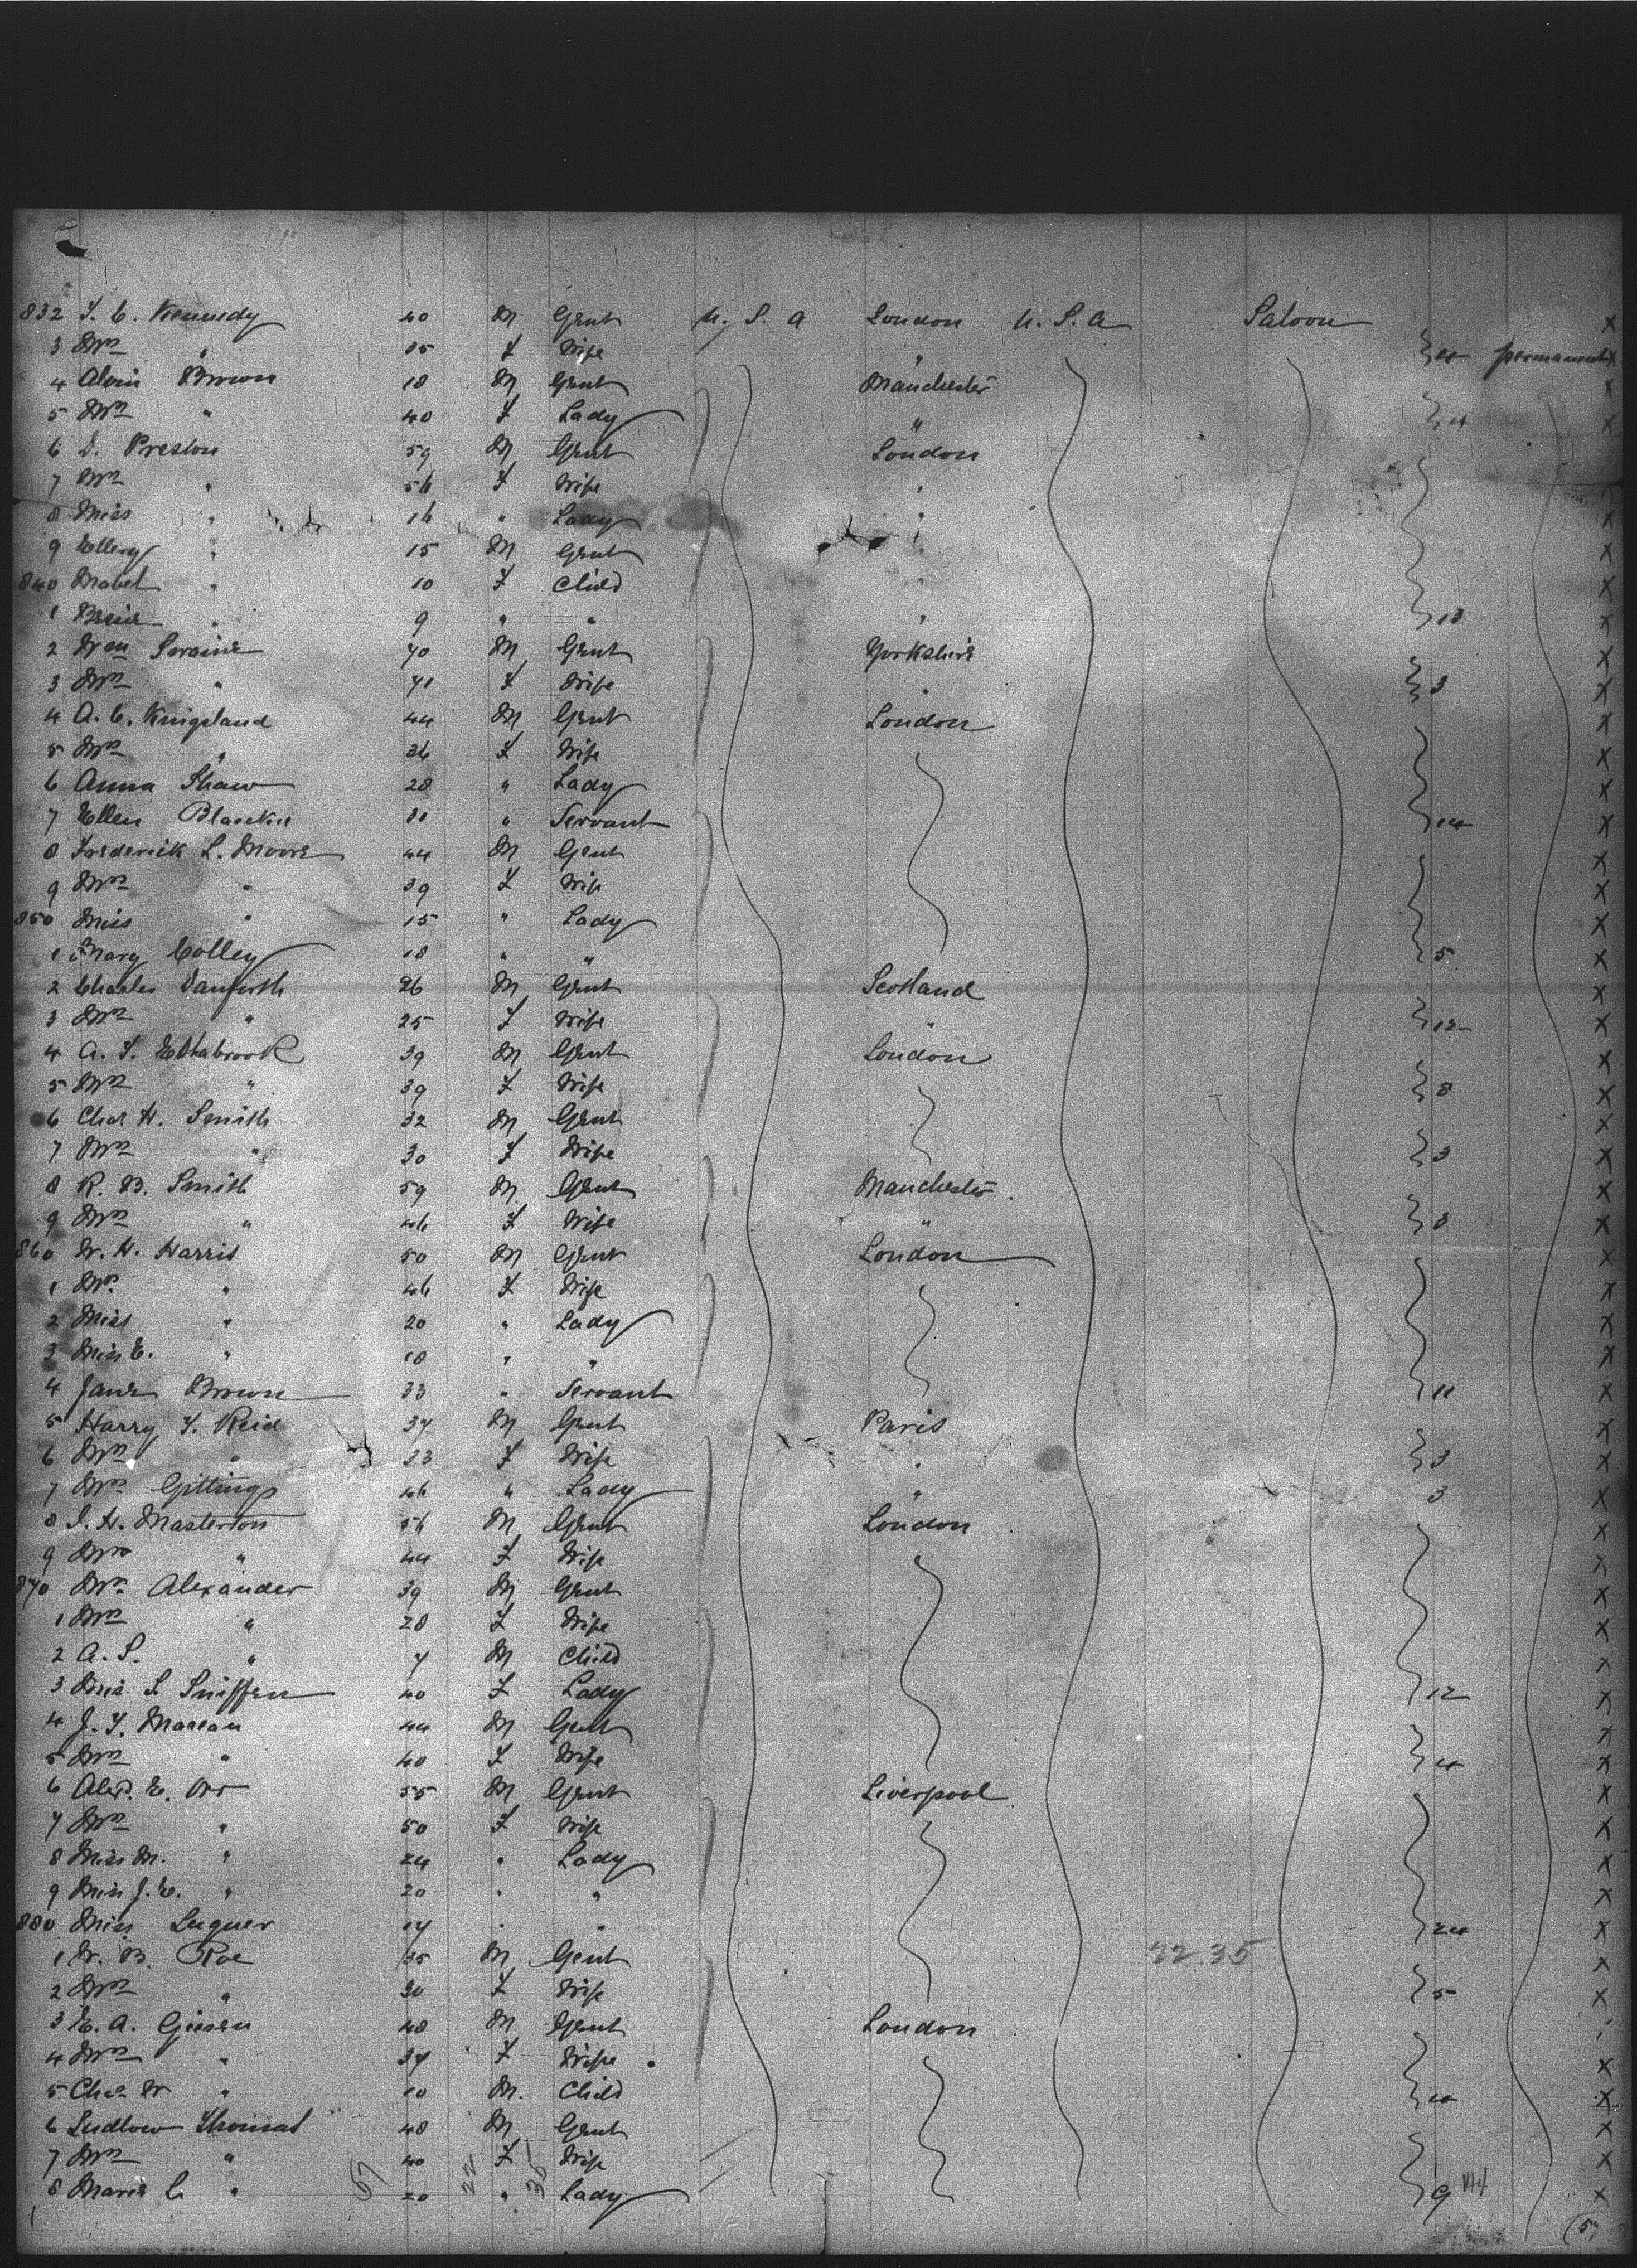 832 T. C. Kennedy 40 M Gent U. S. A London U. S. A Saloon X
3 Mrs " 35 F Wife " 4 permanent X
4 Alvin Brown 18 M Gent Manchester X
5 Mrs " 40 F Lady " 4 X
6 D. Preston 59 M Gent London
7 Mrs " 56 F Wife "
8 Miss " 16 " Lady " X
9 Ellery " 15 M Gent X
840 Mabel " 10 F Child " X
1 " 9 " " " 13 X
2 Wm Loraine 70 M Gent Yorkshire X
3 Mrs " 71 F Wife " 3 X
4 A. C. Kingsland 44 M Gent London X
5 Mrs " 36 F Wife X
6 Anna Shaw 28 " Lady X
7 Ellen " Servant 14 X
8 Frederick L. Moore 44 M Gent X
9 Mrs " 39 F Wife X
850 Miss " 15 " Lady X
1 Mary Colley 18 " " 5 X
2 Charles Danforth 26 M Gent Scotland X
3 Mrs " 25 F Wife " 12 X
4 A. F. Estabrook 39 M Gent London X
5 Mrs " 39 F Wife 8 X
6 Chas H. Smith 32 M Gent X
7 Mrs " 30 F Wife 3 X
8 R. B. Smith 59 M Gent Manchester X
9 Mrs " 46 F Wife " 3 X
860 W. H. Harris 50 M Gent London X
1 Mrs " 46 F Wife X
2 Miss " 20 " Lady X
3 Miss E. " 18 " " X
4 Jane Brown 33 " Servant 11 X
5 Harry F. Reid 37 M Gent Paris X
6 Mrs " 33 F Wife " 3 X
7 Mrs Gittings 46 " Lady " 3 X
8 J. H. Masterton 56 M Gent London X
9 Mrs " 44 F Wife X
870 Alexander 39 M Gent X
1 Mrs " 28 F Wife X
2 A. S. " 7 M Child X
3 Miss S. Sniffen 40 F Lady 12 X
4 J. F. 44 M Gent X
5 Mrs " 40 F Wife 4 X
6 Alex. E. Orr 55 M Gent Liverpool X
7 Mrs " 50 F Wife X
8 Miss M. " 24 " Lady X
9 Miss J. E. " 20 " " X
880 Miss Luquer 17 " " 24 X
1 W. B. Roe 35 M Gent 22.35 X
2 Mrs " 30 F Wife 5 X
3 E. A. 48 M Gent London
4 Mrs " 37 F Wife X
5 Chas W " 10 M. Child 4 X
6 Ludlow Thomas 48 M Gent X
7 Mrs " 40 F Wife X
8 Marie L. " 57 20 22 " 35 Lady 9 X